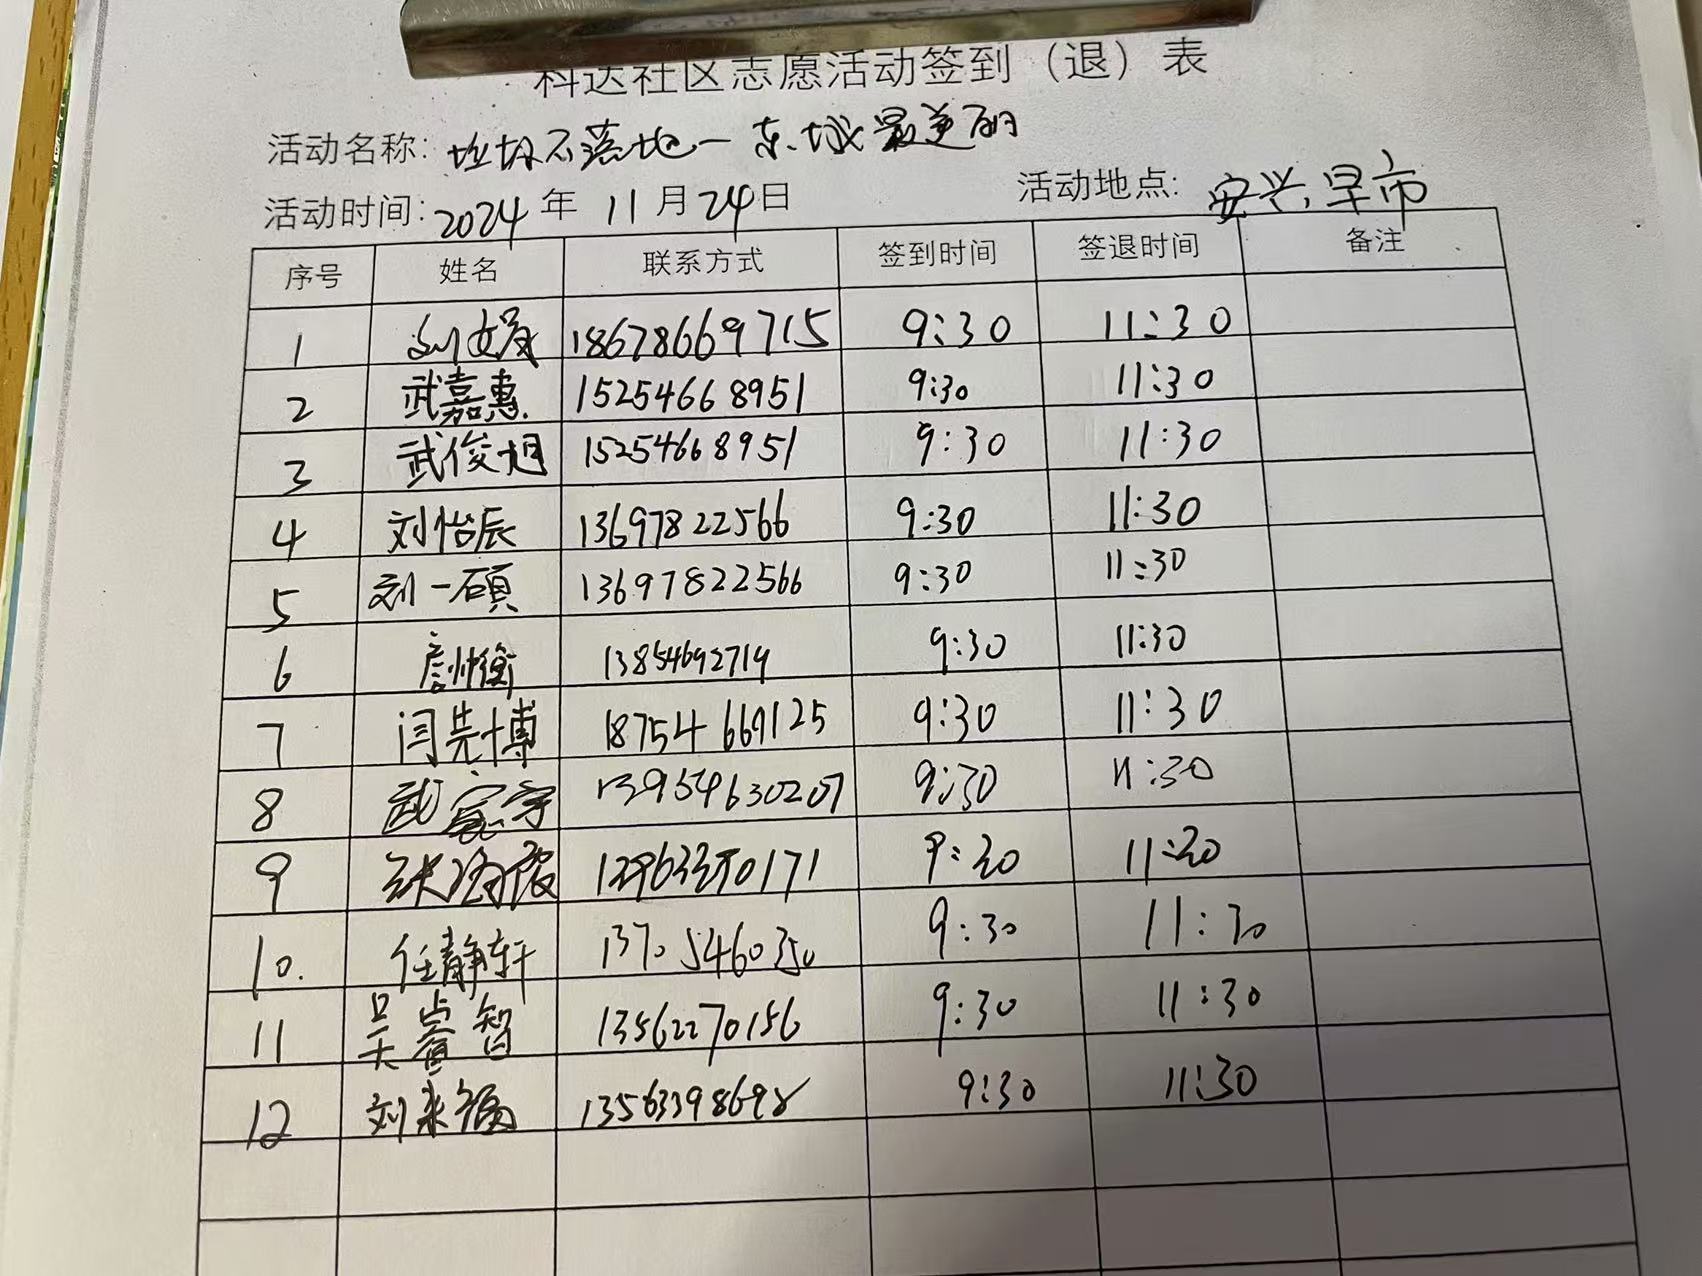 科达社区志愿活动签到（退）表
活动名称: 垃圾不落地一东城最美丽
活动时间: 2024 年 11 月 24 日 活动地点: 安兴早市
序号 姓名 联系方式 签到时间 签退时间 备注
1 刘娟 18678669715 9:30 11:30
2 武嘉惠 15254668951 9:30 11:30
3 武俊旭 15254668951 9:30 11:30
4 刘怡辰 13697822566 9:30 11:30
5 刘一硕 13697822566 9:30 11:30
6 13854692719 9:30 11:30
7 闫先博 18754669125 9:30 11:30
8 武宸宇 13954630207 9:30 11:30
9 9:30 11:30
10. 任静轩 13705460350 9:30 11:30
11 吴睿智 13562270156 9:30 11:30
12 刘来福 13563398698 9:30 11:30